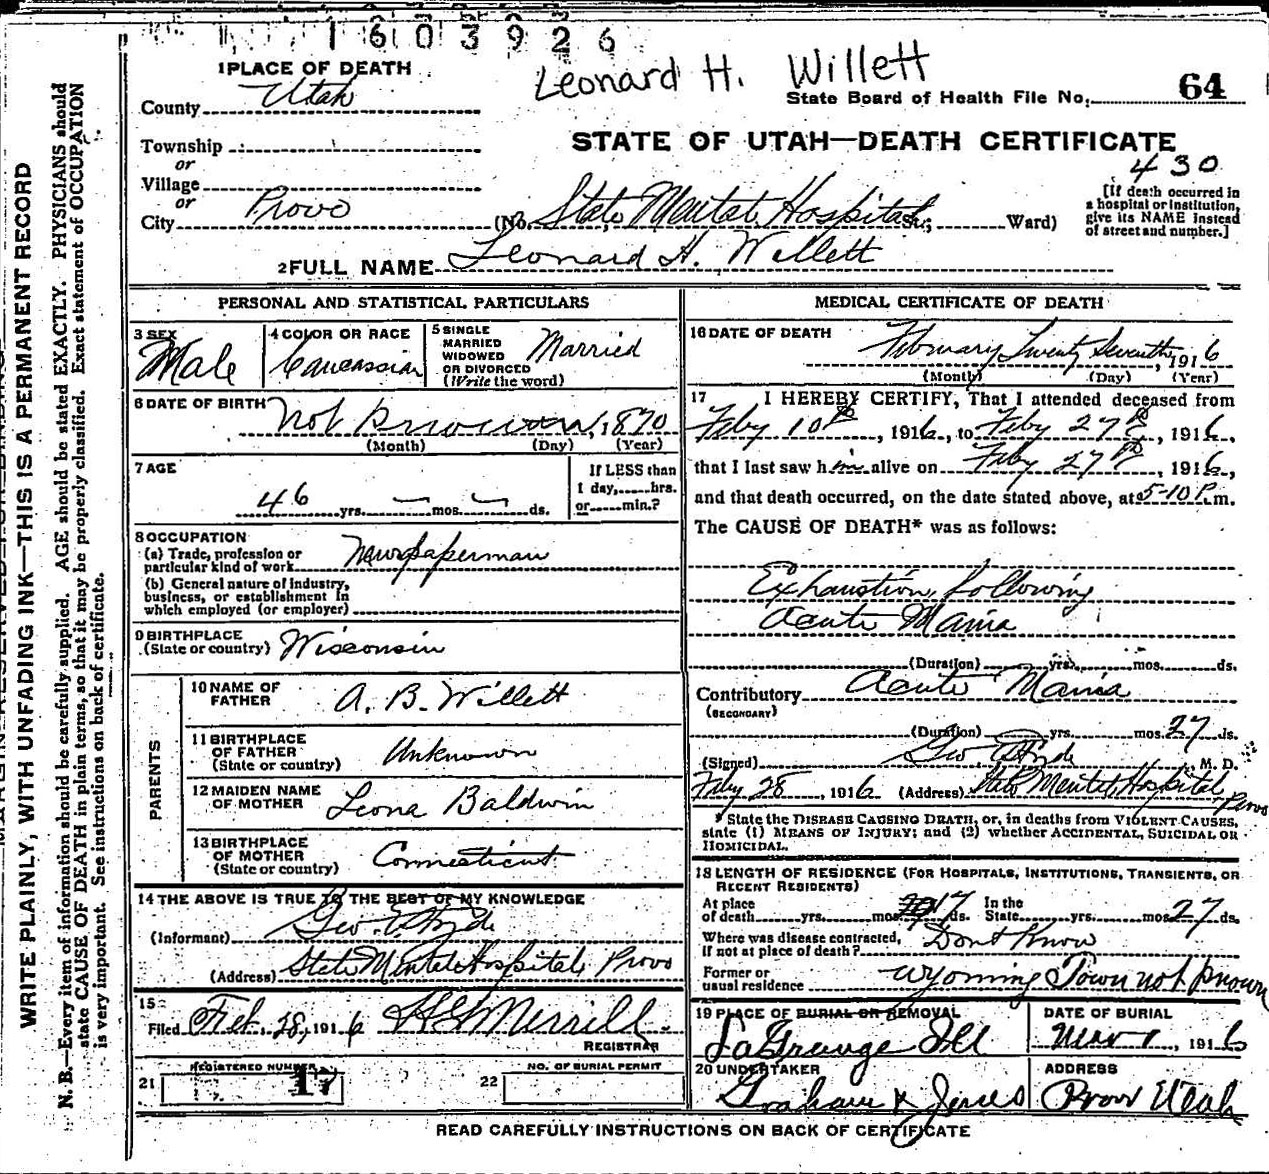 1603926
Leonard H. Willett
1 PLACE OF DEATH
County Utah
State Board of Health File No. 64
Township
or
Village
or
City Provo
STATE OF UTAH—DEATH CERTIFICATE
430
(No. State Mental Hospital St., Ward)
[If death occurred in
a hospital or institution,
give its NAME instead
of street and number.]
2 FULL NAME Leonard H. Willett
PERSONAL AND STATISTICAL PARTICULARS
3 SEX
Male
4 COLOR OR RACE
Caucassian
5 SINGLE
MARRIED
WIDOWED
OR DIVORCED
(Write the word)
Married
6 DATE OF BIRTH
Not Known, 1870
(Month) (Day) (Year)
7 AGE
46 yrs. — mos. — ds.
If LESS than
1 day, hrs.
or min.?
8 OCCUPATION
(a) Trade, profession or
particular kind of work Newspaperman
(b) General nature of industry,
business, or establishment in
which employed (or employer)
9 BIRTHPLACE
(State or country) Wisconsin
PARENTS
10 NAME OF
FATHER A. B. Willett
11 BIRTHPLACE
OF FATHER
(State or country) Unknown
12 MAIDEN NAME
OF MOTHER Leona Baldwin
13 BIRTHPLACE
OF MOTHER
(State or country) Connecticut
14 THE ABOVE IS TRUE TO THE BEST OF MY KNOWLEDGE
(Informant) Geo. E. Hyde
(Address) State Mental Hospital, Provo
15
Filed Feb. 28, 1916 H S Merrill.
REGISTRAR
21 REGISTERED NUMBER
17
22 NO. OF BURIAL PERMIT
MEDICAL CERTIFICATE OF DEATH
16 DATE OF DEATH
February Twenty Seventh, 1916
(Month) (Day) (Year)
17 I HEREBY CERTIFY, That I attended deceased from
Feby 10th, 1916, to Feby 27th, 1916,
that I last saw him alive on Feby 27th, 1916,
and that death occurred, on the date stated above, at 5-10 P.m.
The CAUSE OF DEATH* was as follows:
Exhaustion, following
Acute Mania
(Duration) yrs. mos. ds.
Contributory Acute Mania
(SECONDARY)
(Duration) yrs. mos. 27 ds.
(Signed) Geo. E. Hyde M. D.
Feby 28, 1916 (Address) State Mental Hospital
Provo
* State the DISEASE CAUSING DEATH, or, in deaths from VIOLENT CAUSES,
state (1) MEANS OF INJURY; and (2) whether ACCIDENTAL, SUICIDAL OR
HOMICIDAL.
18 LENGTH OF RESIDENCE (FOR HOSPITALS, INSTITUTIONS, TRANSIENTS, OR
RECENT RESIDENTS)
At place
of death yrs. mos. 17 ds.
In the
State yrs. mos. 27 ds.
Where was disease contracted,
if not at place of death? Dont Know
Former or
usual residence Wyoming Town not known
19 PLACE OF BURIAL OR REMOVAL
LaGrange Ill
DATE OF BURIAL
Mar 1, 1916
20 UNDERTAKER
Graham & Jones
ADDRESS
Provo Utah
READ CAREFULLY INSTRUCTIONS ON BACK OF CERTIFICATE
WRITE PLAINLY, WITH UNFADING INK—THIS IS A PERMANENT RECORD
N. B.—Every item of information should be carefully supplied. AGE should be stated EXACTLY. PHYSICIANS should
state CAUSE OF DEATH in plain terms, so that it may be properly classified. Exact statement of OCCUPATION
is very important. See instructions on back of certificate.